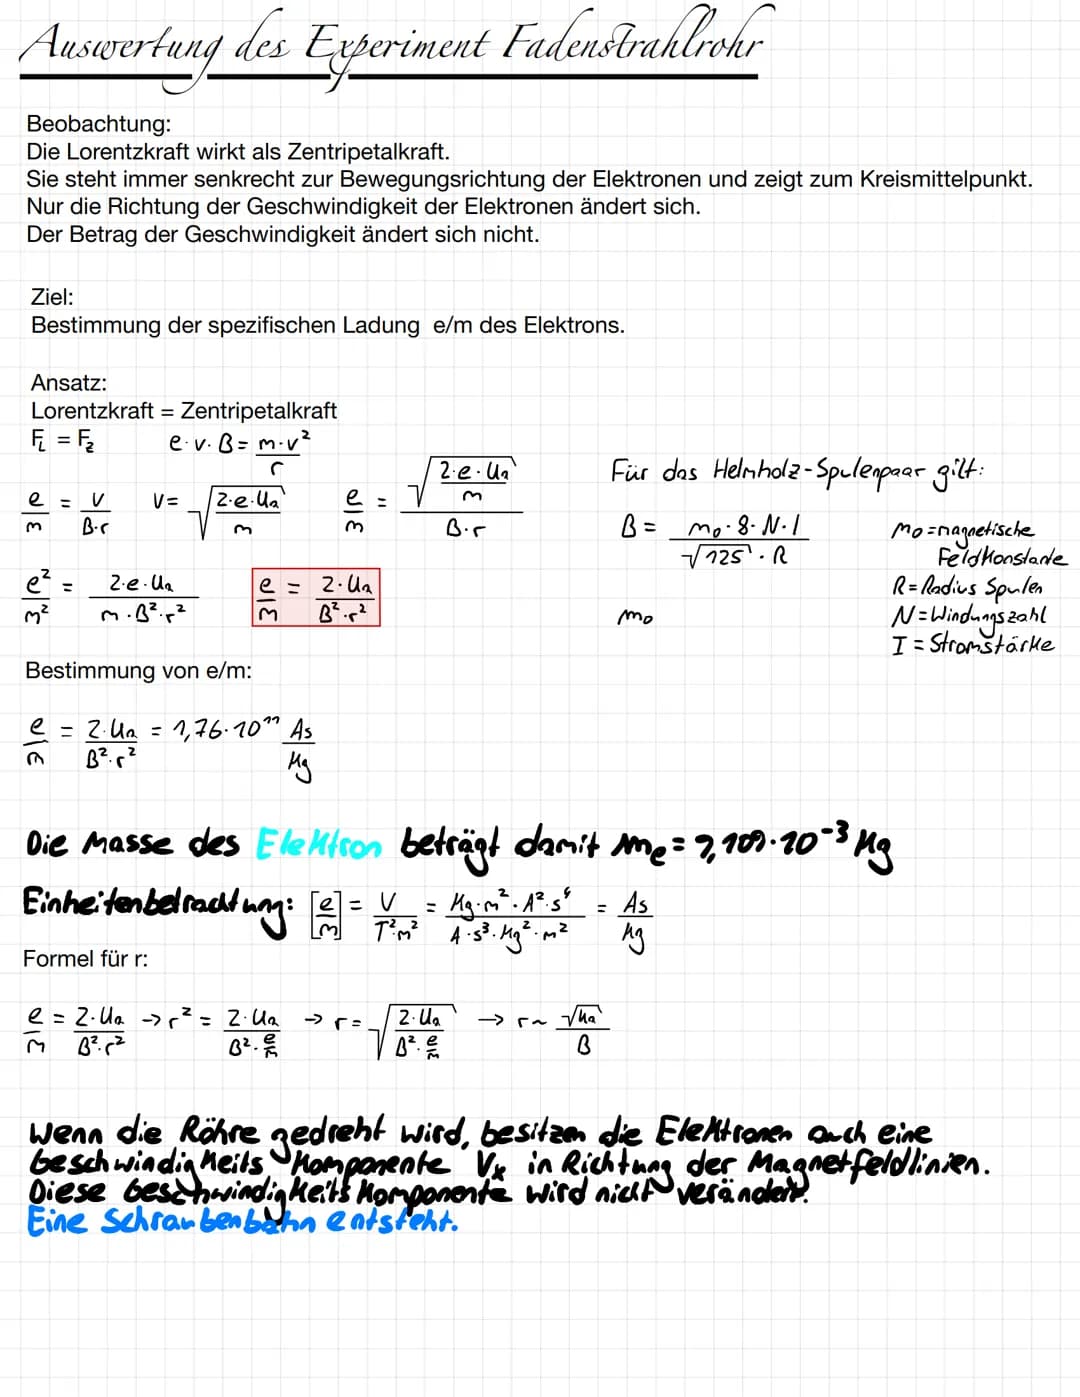 Auswertung des Experiment Fadenstrahlrohr
Beobachtung:
Die Lorentzkraft wirkt als Zentripetalkraft.
Sie steht immer senkrecht zur Bewegungsrichtung der Elektronen und zeigt zum Kreismittelpunkt.
Nur die Richtung der Geschwindigkeit der Elektronen ändert sich.
Der Betrag der Geschwindigkeit ändert sich nicht.
Ziel:
Bestimmung der spezifischen Ladung e/m des Elektrons.
Ansatz:
Lorentzkraft = Zentripetalkraft
F_L = F_z   e·v·B = m·v²/r
e/m = v/(B·r)   v = √(2·e·Ua/m)   e/m = √(2·e·Ua/m)/(B·r)
e²/m² = 2·e·Ua/(m·B²·r²)   e/m = 2·Ua/(B²·r²)
Für das Helmholz-Spulenpaar gilt:
B = m₀·8·N·I/(√125·R)
m₀
m₀ = magnetische
Feldkonstante
R = Radius Spulen
N = Windungszahl
I = Stromstärke
Bestimmung von e/m:
e/m = 2·Ua/(B²·r²) = 1,76·10¹¹ As/kg
Die Masse des Elektron beträgt damit me = 9,109·10⁻³ kg
Einheitenbetrachtung: [e/m] = V/(T²m²) = kg·m²·A²·s⁴/(A·s³·kg²·m²) = As/kg
Formel für r:
e/m = 2·Ua/(B²·r²) → r² = 2·Ua/(B²·e/m) → r = √(2·Ua/(B²·e/m)) → r ~ √Ua/B
Wenn die Röhre gedreht wird, besitzen die Elektronen auch eine
beschwindigkeits Komponente Vx in Richtung der Magnetfeldlinien.
Diese beschwindigkeits Komponente wird nicht verändert.
Eine Schraubenbahn entsteht.